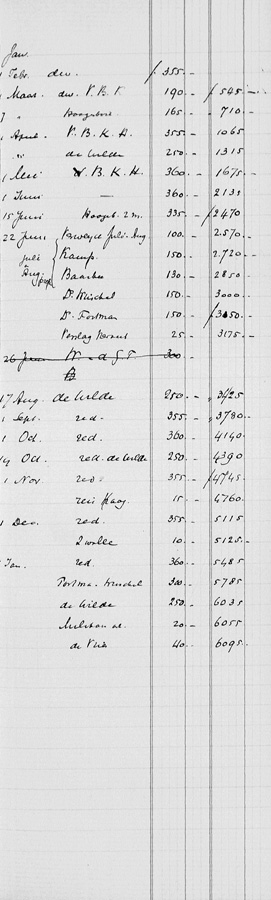 Jan.
1 Febr. div. ƒ 355.-
1 Maart div. V.B.K. 190.- ƒ 545.-
" Hoogstr. 165.- ƒ 710.-
1 April V.B.K.H. 355.- 1065
" de Wilde 250.- 1315
1 Mei V.B.K.H. 360.- 1675
1 Juni — 360.- 2135
15 Juni Hoogst. 2 m. 335.- ƒ 2470
22 Juni Juli-Aug 100.- 2.570.-
juli Kamp. 150.- 2.720.-
Aug. Baarke 130.- 2850
Dr. 150.- 3000.-
Dr. Portman 150.- ƒ 3150.-
Verslag 25.- 3175.-
26 Juni 300
17 Aug. de Wilde 250.- ƒ 3425
1 Sept. red. 355.- ƒ 3780.-
1 Oct. red. 360.- 4140
14 Oct. red. de Wilde 250.- 4390
1 Nov. red. 355.- ƒ 4745.-
reis Haag 15.- 4760.
1 Dec. red. 355.- 5115
Zwolle 10.- 5125.-
Jan. red. 360.- 5485
Portman 300.- 5785
de Wilde 250.- 6035
20.- 6055
de Vries 40.- 6095.-